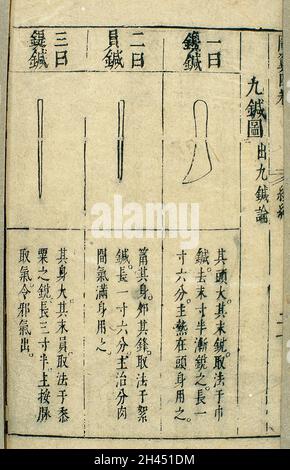 九鍼圖 出九鍼論
一曰
鑱鍼
其頭大。其末銳。取法于巾
鍼。去末寸半漸銳之。長一
寸六分。主熱在頭身用之。
二曰
員鍼
筩其身。卵其鋒。取法于絮
鍼。長一寸六分。主治分肉
間氣滿身用之。
三曰
鍉鍼
其身大。其末員。取法于黍
粟之銳。長三寸半。主按脉
取氣令邪氣出。
alamy
Image ID: 2H451DM
www.alamy.com